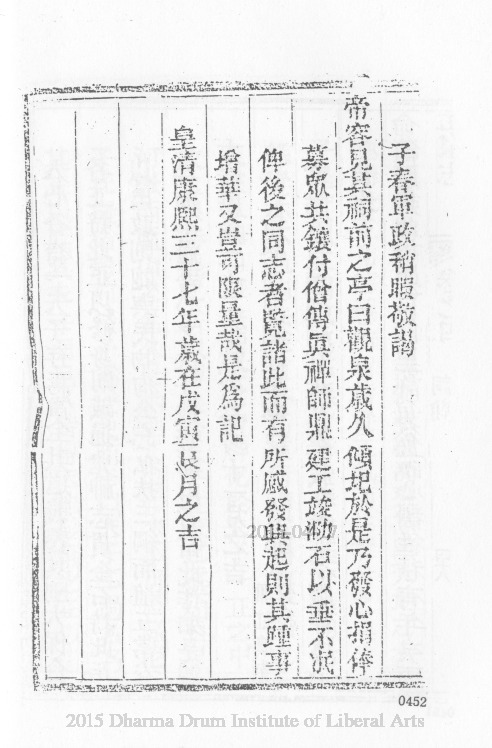 子春軍政稍暇敬謁
帝容見其祠前之亭曰觀泉歲久傾圮於是乃發心捐俸
募眾共鑲付僧傳眞禪師鼎建工竣勒石以垂不泯
俾後之同志者覽諸此而有所感發興起則其踵事
增華又豈可限量哉是為記
皇清康熙三十七年歲在戊寅良月之吉
0452
2015 Dharma Drum Institute of Liberal Arts